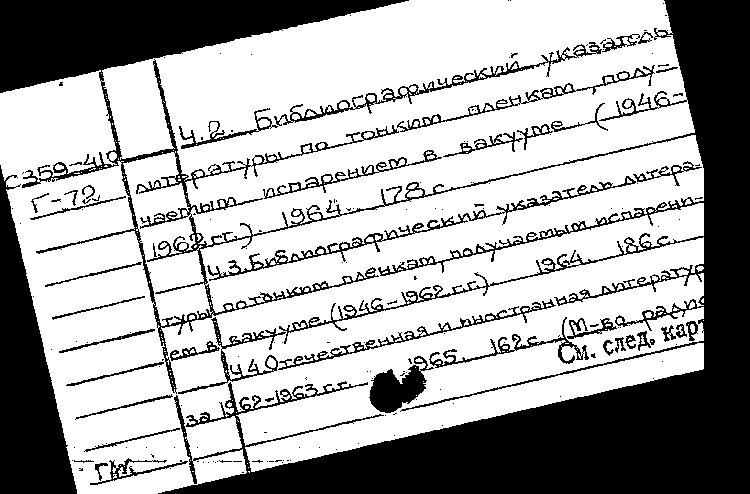 Ч.2. Библиографический указатель
С359-410 литературы по тонким пленкам, полу-
Г-72 чаемым испарением в вакууме (1946-
1962 гг.). 1964. 178 с.
Ч.3. Библиографический указатель литера-
туры по тонким пленкам, получаемым испарени-
ем в вакууме. (1946-1962 г.г.). 1964. 186 с.
Ч.4 Отечественная и иностранная литератур
за 1962-1963 г.г. 1965. 162 с. (М-во радио
См. след. карт